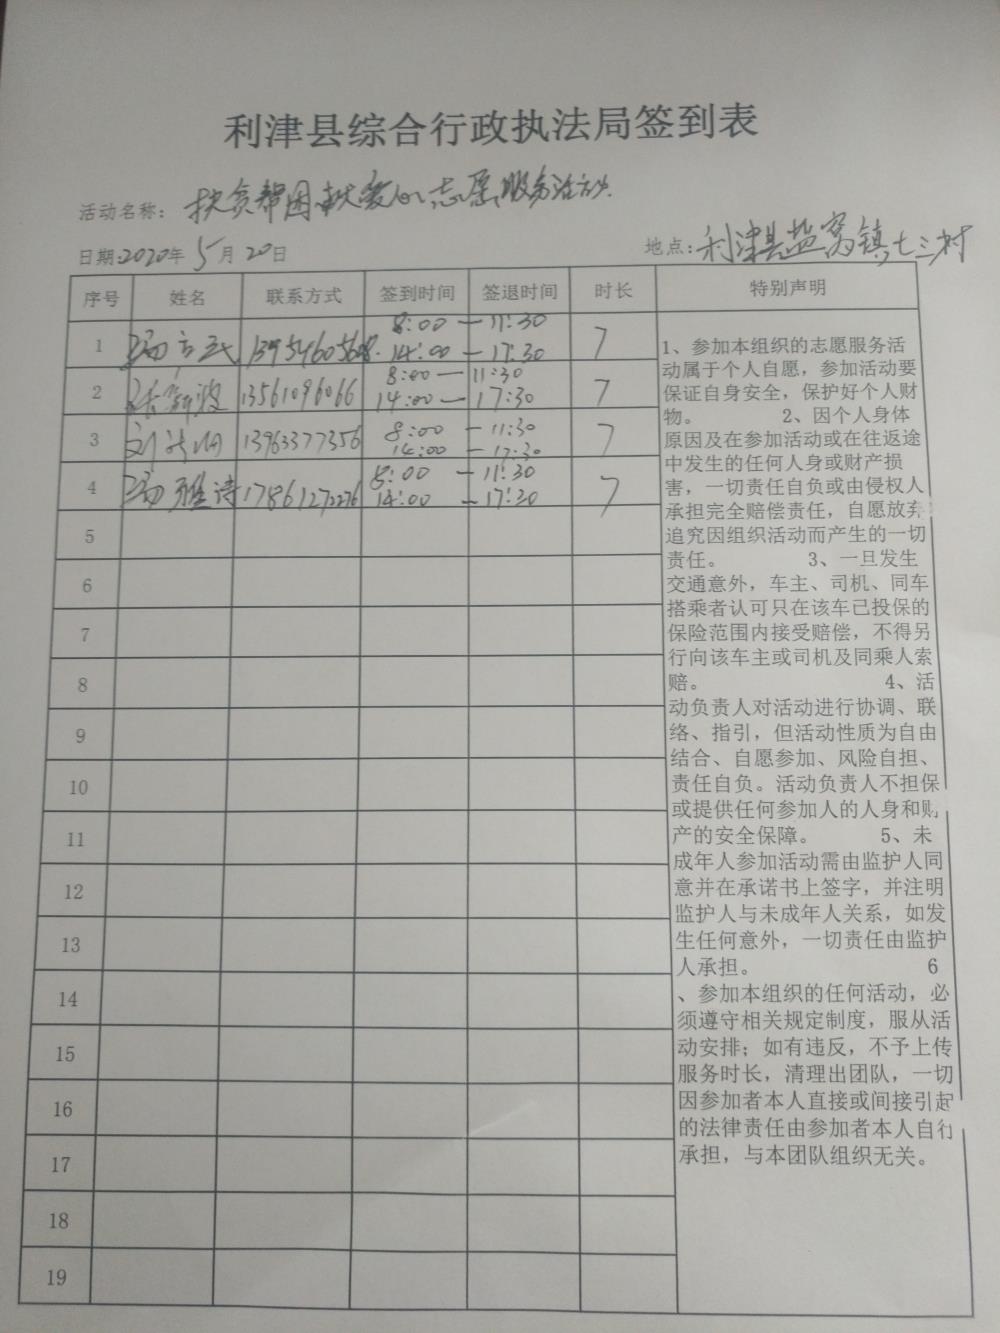 利津县综合行政执法局签到表
活动名称：扶贫帮困献爱心志愿服务活动
日期:2020年5月20日 地点:利津县盐窝镇七三村
序号 姓名 联系方式 签到时间 签退时间 时长 特别声明
1 8:00 — 11:30 14:00 — 17:30 7
2 13561096066 8:00 — 11:30 14:00 — 17:30 7
3 13963377356 8:00 — 11:30 14:00 — 17:30 7
4 17861272276 8:00 — 11:30 14:00 — 17:30 7
5
6
7
8
9
10
11
12
13
14
15
16
17
18
19
1、参加本组织的志愿服务活
动属于个人自愿，参加活动要
保证自身安全，保护好个人财
物。 2、因个人身体
原因及在参加活动或在往返途
中发生的任何人身或财产损
害，一切责任自负或由侵权人
承担完全赔偿责任，自愿放弃
追究因组织活动而产生的一切
责任。 3、一旦发生
交通意外，车主、司机、同车
搭乘者认可只在该车已投保的
保险范围内接受赔偿，不得另
行向该车主或司机及同乘人索
赔。 4、活
动负责人对活动进行协调、联
络、指引，但活动性质为自由
结合、自愿参加、风险自担、
责任自负。活动负责人不担保
或提供任何参加人的人身和财
产的安全保障。 5、未
成年人参加活动需由监护人同
意并在承诺书上签字，并注明
监护人与未成年人关系，如发
生任何意外，一切责任由监护
人承担。 6
、参加本组织的任何活动，必
须遵守相关规定制度，服从活
动安排；如有违反，不予上传
服务时长，清理出团队，一切
因参加者本人直接或间接引起
的法律责任由参加者本人自行
承担，与本团队组织无关。